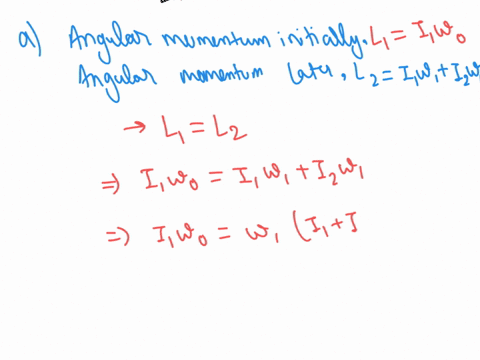 a) Angular momentum initially. L₁ = I₁ω₀
Angular momentum later, L₂ = I₁ω₁ + I₂ω
→ L₁ = L₂
⇒ I₁ω₀ = I₁ω₁ + I₂ω₁
⇒ I₁ω₀ = ω₁ (I₁ + I